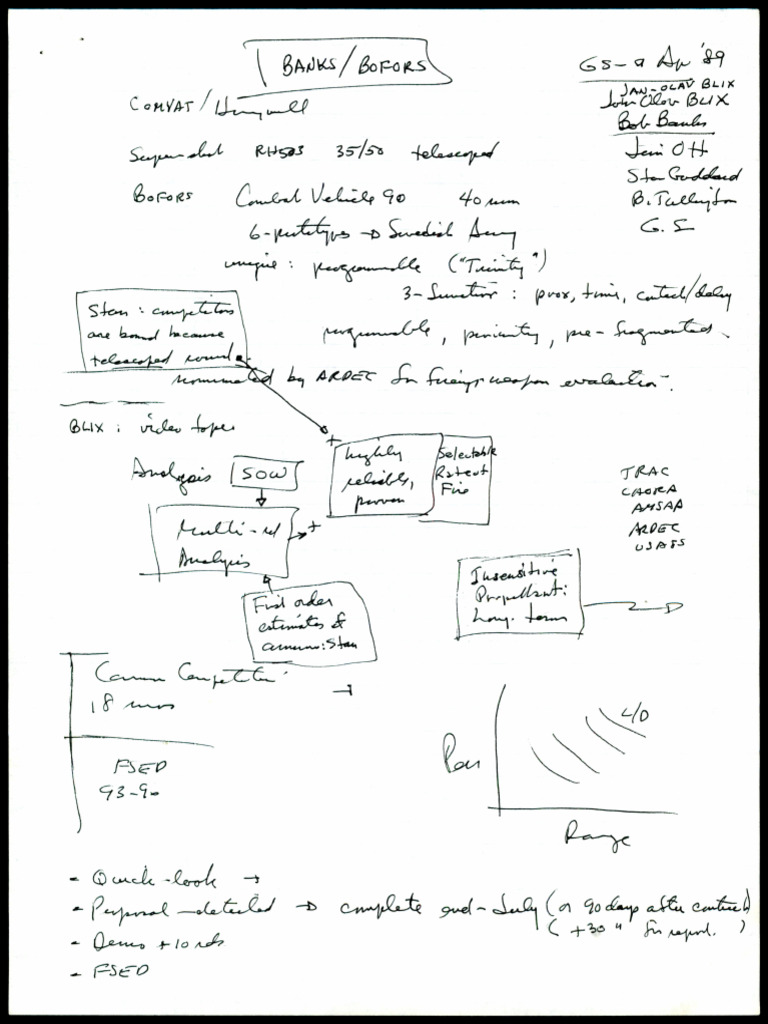 BANKS/BOFORS
GS-9 Apr '89
JAN-OLAV BLIX
John Olov BLIX
Bob Banks
Jim Ott
Stan Goddard
B. Tullington
G. S
COMVAT/Honeywell
Supershot RH503 35/50 telescoped
BOFORS Combat Vehicle 90 40 mm
6-prototypes → Swedish Army
unique: programmable ("Trinity")
3-function: prox, time, contact/delay
programmable, proximity, pre-fragmented.
Stan: competitors
are bound because
telescoped round
nominated by ARDEC for foreign weapon evaluation.
BLIX: video tapes
+
highly
reliable,
proven
Selectable
Rate of
Fire
Analysis SOW
Multi-rd
Analysis
+
First order
estimates of
ammo: Stan
TRAC
CAORA
AMSAA
ARDEC
USAIS
Insensitive
Propellant:
Long-term
Cannon Competition
18 mos
FSED
93-90
L/D
Range
- Quick-look →
- Proposal-detailed → complete end-July (or 90 days after contract)
( +30 " for report. )
- Demo +10 rds
- FSED